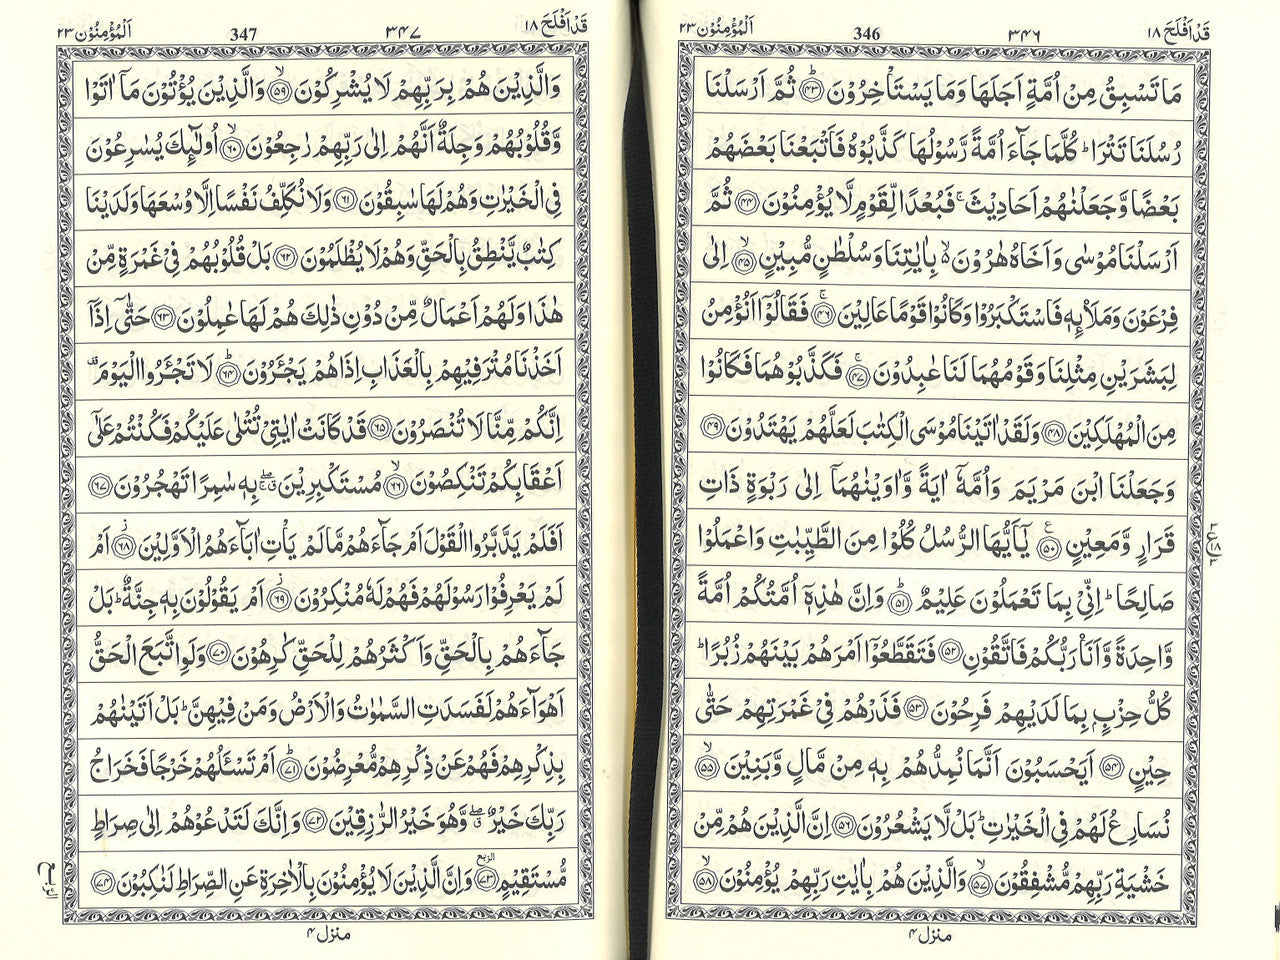 قَدْ اَفْلَحَ ١٨
٣٤٦
346
اَلْمُؤْمِنُوْن ٢٣
مَا تَسْبِقُ مِنْ اُمَّةٍ اَجَلَهَا وَمَا يَسْتَاْخِرُوْنَ ؕ‏﴿۴۳﴾ ثُمَّ اَرْسَلْنَا
رُسُلَنَا تَتْرَا ؕ كُلَّمَا جَآءَ اُمَّةً رَّسُوْلُهَا كَذَّبُوْهُ فَاَتْبَعْنَا بَعْضَهُمْ
بَعْضًا وَّجَعَلْنٰهُمْ اَحَادِيْثَ ۚ فَبُعْدًا لِّقَوْمٍ لَّا يُؤْمِنُوْنَ ﴿۴۴﴾ ثُمَّ
اَرْسَلْنَا مُوْسٰى وَاَخَاهُ هٰرُوْنَ ۙ بِاٰيٰتِنَا وَسُلْطٰنٍ مُّبِيْنٍ ۙ﴿۴۵﴾ اِلٰى
فِرْعَوْنَ وَمَلَا۟ئِهٖ فَاسْتَكْبَرُوْا وَكَانُوْا قَوْمًا عَالِيْنَ ۚ﴿۴۶﴾ فَقَالُوْۤا اَنُؤْمِنُ
لِبَشَرَيْنِ مِثْلِنَا وَقَوْمُهُمَا لَنَا عٰبِدُوْنَ ۚ﴿۴۷﴾ فَكَذَّبُوْهُمَا فَكَانُوْا
مِنَ الْمُهْلَكِيْنَ ﴿۴۸﴾ وَلَقَدْ اٰتَيْنَا مُوْسَى الْكِتٰبَ لَعَلَّهُمْ يَهْتَدُوْنَ ﴿۴۹﴾
وَجَعَلْنَا ابْنَ مَرْيَمَ وَاُمَّهٗۤ اٰيَةً وَّاٰوَيْنٰهُمَاۤ اِلٰى رَبْوَةٍ ذَاتِ
قَرَارٍ وَّمَعِيْنٍ ﴿۵۰﴾ يٰۤاَيُّهَا الرُّسُلُ كُلُوْا مِنَ الطَّيِّبٰتِ وَاعْمَلُوْا
صَالِحًا ؕ اِنِّىْ بِمَا تَعْمَلُوْنَ عَلِيْمٌ ؕ﴿۵۱﴾ وَاِنَّ هٰذِهٖۤ اُمَّتُكُمْ اُمَّةً
وَّاحِدَةً وَّاَنَا رَبُّكُمْ فَاتَّقُوْنِ ﴿۵۲﴾ فَتَقَطَّعُوْۤا اَمْرَهُمْ بَيْنَهُمْ زُبُرًا ؕ
كُلُّ حِزْبٍۭ بِمَا لَدَيْهِمْ فَرِحُوْنَ ﴿۵۳﴾ فَذَرْهُمْ فِىْ غَمْرَتِهِمْ حَتّٰى
حِيْنٍ ﴿۵۴﴾ اَيَحْسَبُوْنَ اَنَّمَا نُمِدُّهُمْ بِهٖ مِنْ مَّالٍ وَّبَنِيْنَ ۙ﴿۵۵﴾
نُسَارِعُ لَهُمْ فِى الْخَيْرٰتِ ؕ بَلْ لَّا يَشْعُرُوْنَ ﴿۵۶﴾ اِنَّ الَّذِيْنَ هُمْ مِّنْ
خَشْيَةِ رَبِّهِمْ مُّشْفِقُوْنَ ۙ﴿۵۷﴾ وَالَّذِيْنَ هُمْ بِاٰيٰتِ رَبِّهِمْ يُؤْمِنُوْنَ ۙ﴿۵۸﴾
منزل ۴
قَدْ اَفْلَحَ ١٨
٣٤٧
347
اَلْمُؤْمِنُوْن ٢٣
وَالَّذِيْنَ هُمْ بِرَبِّهِمْ لَا يُشْرِكُوْنَ ۙ﴿۵۹﴾ وَالَّذِيْنَ يُؤْتُوْنَ مَاۤ اٰتَوْا
وَّقُلُوْبُهُمْ وَجِلَةٌ اَنَّهُمْ اِلٰى رَبِّهِمْ رٰجِعُوْنَ ۙ﴿۶۰﴾ اُولٰٓئِكَ يُسٰرِعُوْنَ
فِى الْخَيْرٰتِ وَهُمْ لَهَا سٰبِقُوْنَ ﴿۶۱﴾ وَلَا نُكَلِّفُ نَفْسًا اِلَّا وُسْعَهَا وَلَدَيْنَا
كِتٰبٌ يَّنْطِقُ بِالْحَقِّ وَهُمْ لَا يُظْلَمُوْنَ ﴿۶۲﴾ بَلْ قُلُوْبُهُمْ فِىْ غَمْرَةٍ مِّنْ
هٰذَا وَلَهُمْ اَعْمَالٌ مِّنْ دُوْنِ ذٰلِكَ هُمْ لَهَا عٰمِلُوْنَ ﴿۶۳﴾ حَتّٰۤى اِذَاۤ
اَخَذْنَا مُتْرَفِيْهِمْ بِالْعَذَابِ اِذَا هُمْ يَجْـَٔرُوْنَ ؕ﴿۶۴﴾ لَا تَجْـَٔرُوا الْيَوْمَ قف
اِنَّكُمْ مِّنَّا لَا تُنْصَرُوْنَ ﴿۶۵﴾ قَدْ كَانَتْ اٰيٰتِىْ تُتْلٰى عَلَيْكُمْ فَكُنْتُمْ عَلٰٓى
اَعْقَابِكُمْ تَنْكِصُوْنَ ۙ﴿۶۶﴾ مُسْتَكْبِرِيْنَ ۖ ق بِهٖ سٰمِرًا تَهْجُرُوْنَ ﴿۶۷﴾
اَفَلَمْ يَدَّبَّرُوا الْقَوْلَ اَمْ جَآءَهُمْ مَّا لَمْ يَاْتِ اٰبَآءَهُمُ الْاَوَّلِيْنَ ز﴿۶۸﴾ اَمْ
لَمْ يَعْرِفُوْا رَسُوْلَهُمْ فَهُمْ لَهٗ مُنْكِرُوْنَ ز﴿۶۹﴾ اَمْ يَقُوْلُوْنَ بِهٖ جِنَّةٌ ؕ بَلْ
جَآءَهُمْ بِالْحَقِّ وَاَكْثَرُهُمْ لِلْحَقِّ كٰرِهُوْنَ ﴿۷۰﴾ وَلَوِ اتَّبَعَ الْحَقُّ
اَهْوَآءَهُمْ لَفَسَدَتِ السَّمٰوٰتُ وَالْاَرْضُ وَمَنْ فِيْهِنَّ ؕ بَلْ اَتَيْنٰهُمْ
بِذِكْرِهِمْ فَهُمْ عَنْ ذِكْرِهِمْ مُّعْرِضُوْنَ ؕ﴿۷۱﴾ اَمْ تَسْـَٔلُهُمْ خَرْجًا فَخَرَاجُ
رَبِّكَ خَيْرٌ ۖ ق وَّهُوَ خَيْرُ الرّٰزِقِيْنَ ﴿۷۲﴾ وَاِنَّكَ لَتَدْعُوْهُمْ اِلٰى صِرَاطٍ
مُّسْتَقِيْمٍ ﴿۷۳﴾ وَاِنَّ الَّذِيْنَ لَا يُؤْمِنُوْنَ بِالْاٰخِرَةِ عَنِ الصِّرَاطِ لَنٰكِبُوْنَ ﴿۷۴﴾
منزل ۴